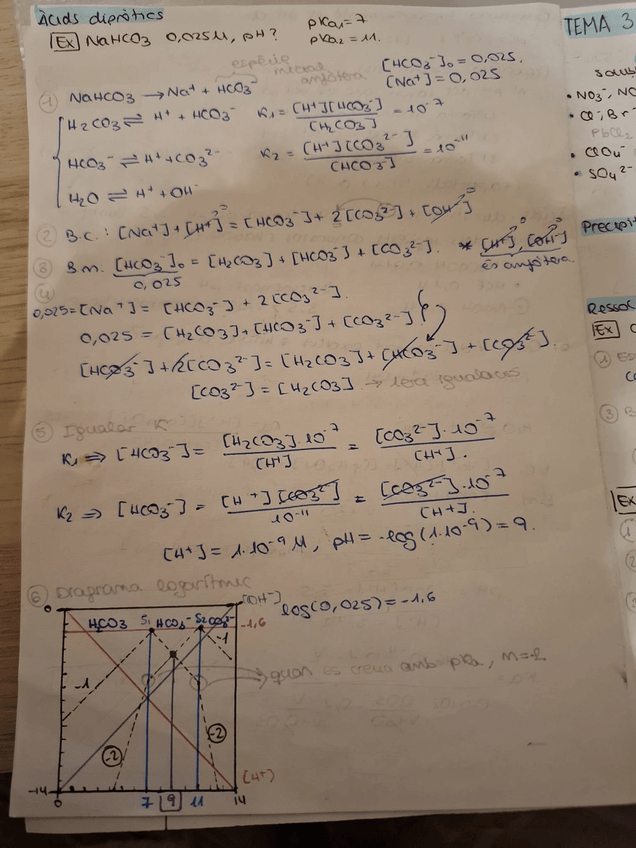 Àcids dipròtics
Ex NaHCO3 0,025M, pH? pKa1=7
pKa2=11.
espècie
[HCO3⁻]0=0,025.
anfòtera
[Na⁺]=0,025
① NaHCO3 → Na⁺ + HCO3⁻
H2CO3 ⇌ H⁺ + HCO3⁻ K1 = [H⁺][HCO3⁻]/[H2CO3] = 10⁻⁷
HCO3⁻ ⇌ H⁺ + CO3²⁻ K2 = [H⁺][CO3²⁻]/[HCO3⁻] = 10⁻¹¹
H2O ⇌ H⁺ + OH⁻
② B.C.: [Na⁺]+[H⁺] = [HCO3⁻] + 2[CO3²⁻] + [OH⁻]
③ B.m. [HCO3⁻]0 = [H2CO3] + [HCO3⁻] + [CO3²⁻]. * [H⁺], [OH⁻]
0,025 és anfòtera.
④
0,025=[Na⁺] = [HCO3⁻] + 2[CO3²⁻].
0,025 = [H2CO3]+[HCO3⁻]+[CO3²⁻]
[HCO3⁻]+2[CO3²⁻] = [H2CO3]+[HCO3⁻]+[CO3²⁻]
[CO3²⁻] = [H2CO3] →
⑤ Igualar K
K1 ⇒ [HCO3⁻] = [H2CO3]·10⁻⁷/[H⁺] = [CO3²⁻]·10⁻⁷/[H⁺].
K2 ⇒ [HCO3⁻] = [H⁺][CO3²⁻]/10⁻¹¹ = [CO3²⁻]·10⁻⁷/[H⁺].
[H⁺] = 1·10⁻⁹ M, pH = -log(1·10⁻⁹) = 9.
⑥ Diagrama logarítmic
0 [OH⁻] log(0,025)=-1,6
H2CO3 S1 HCO3⁻ S2 CO3²⁻ -1,6
-1
-1 quan es creua amb pKa, m=-2
-2 -2
-14 [H⁺]
0 7 9 11 14
TEMA 3
• NO3⁻, NO
• Cl⁻, Br⁻
PbCl2
• ClO4⁻
• SO4²⁻
Precipit
Ressol
Ex
①
③ B
Ex